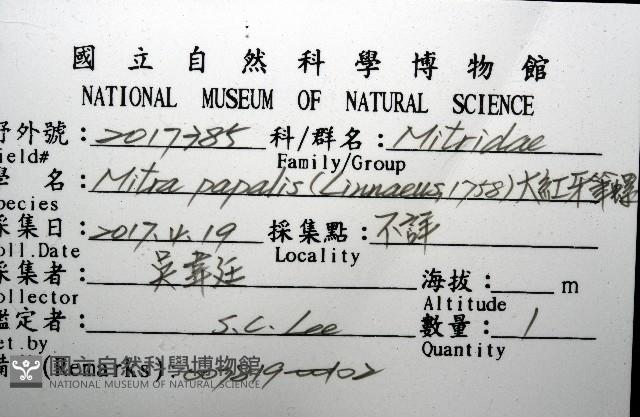 國立自然科學博物館
NATIONAL MUSEUM OF NATURAL SCIENCE
野外號： 2017-385 科/群名： Mitridae
Field# Family/Group
學 名： Mitra papalis (Linnaeus, 1758) 大紅牙筆螺
Species
採集日： 2017.4.19 採集點： 不詳
Coll.Date Locality
採集者： 海拔： m
Collector Altitude
鑑定者： S.C. Lee 數量： 1
Det.by Quantity
備 (Remarks)
國立自然科學博物館
NATIONAL MUSEUM OF NATURAL SCIENCE